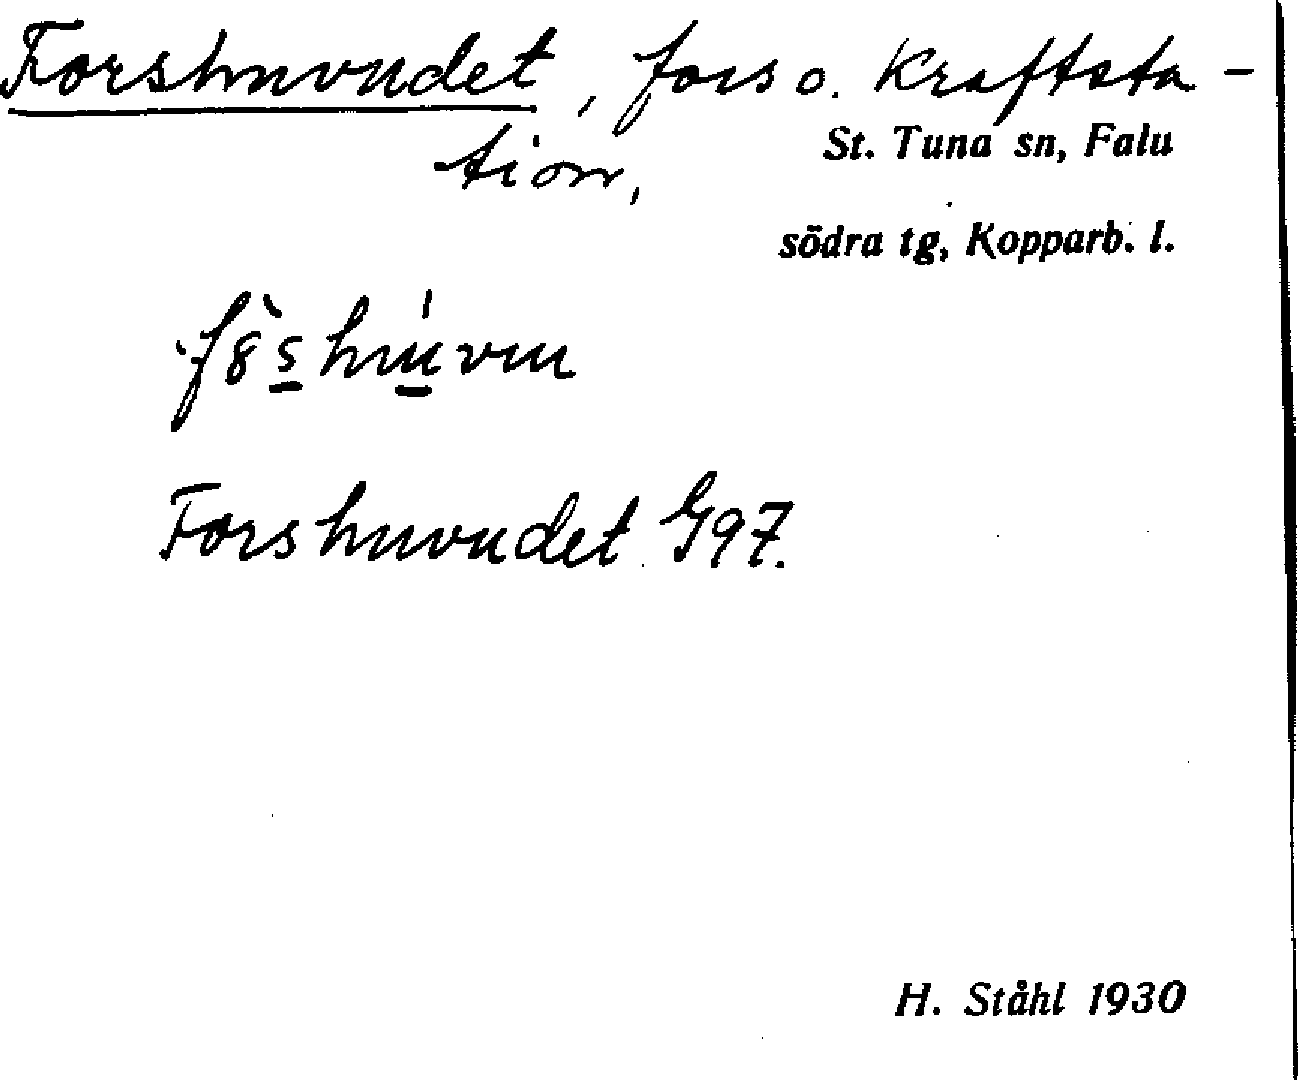 Forshuvudet, fors o. Kraftsta-
tion,
St. Tuna sn, Falu
södra tg, Kopparb. l.
Forshuvudet G97.
H. Ståhl 1930